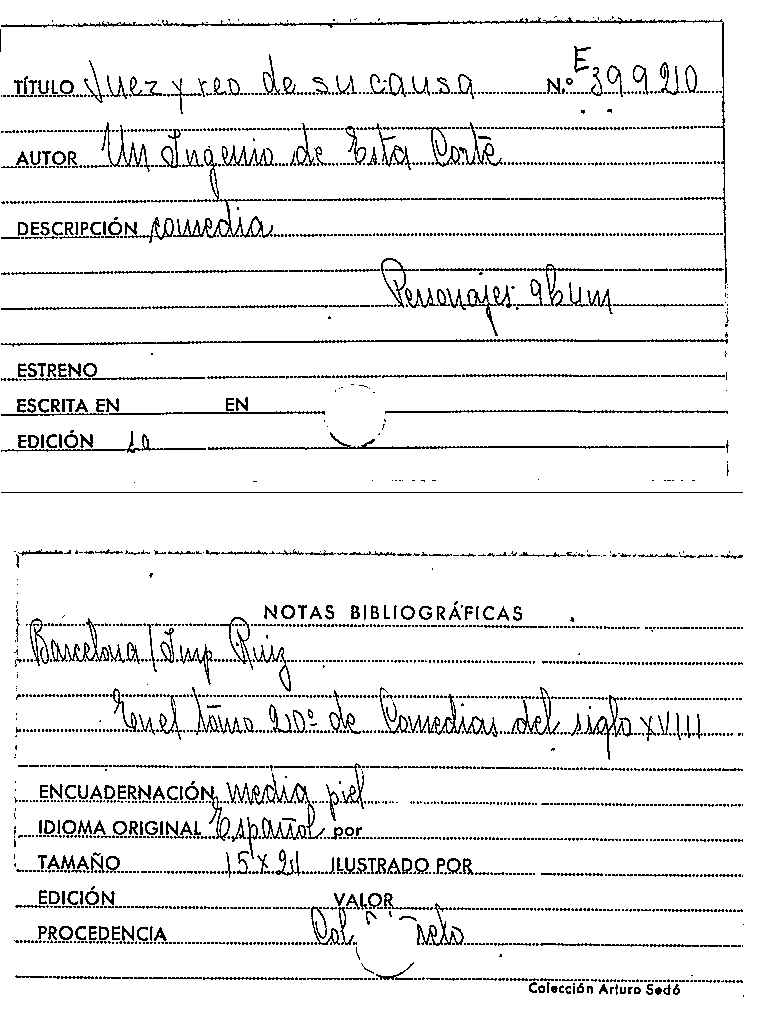 TÍTULO Juez y reo de su causa N.º E 39920
AUTOR Un Ingenio de Esta Corte
DESCRIPCIÓN comedia
Personajes: 9h 4m
ESTRENO
ESCRITA EN EN
EDICIÓN
NOTAS BIBLIOGRÁFICAS
Barcelona / Imp Ruiz
En el tomo 20º de Comedias del siglo XVIII
ENCUADERNACIÓN media piel
IDIOMA ORIGINAL Español por
TAMAÑO 15 x 21 ILUSTRADO POR
EDICIÓN VALOR
PROCEDENCIA
Colección Arturo Sedó